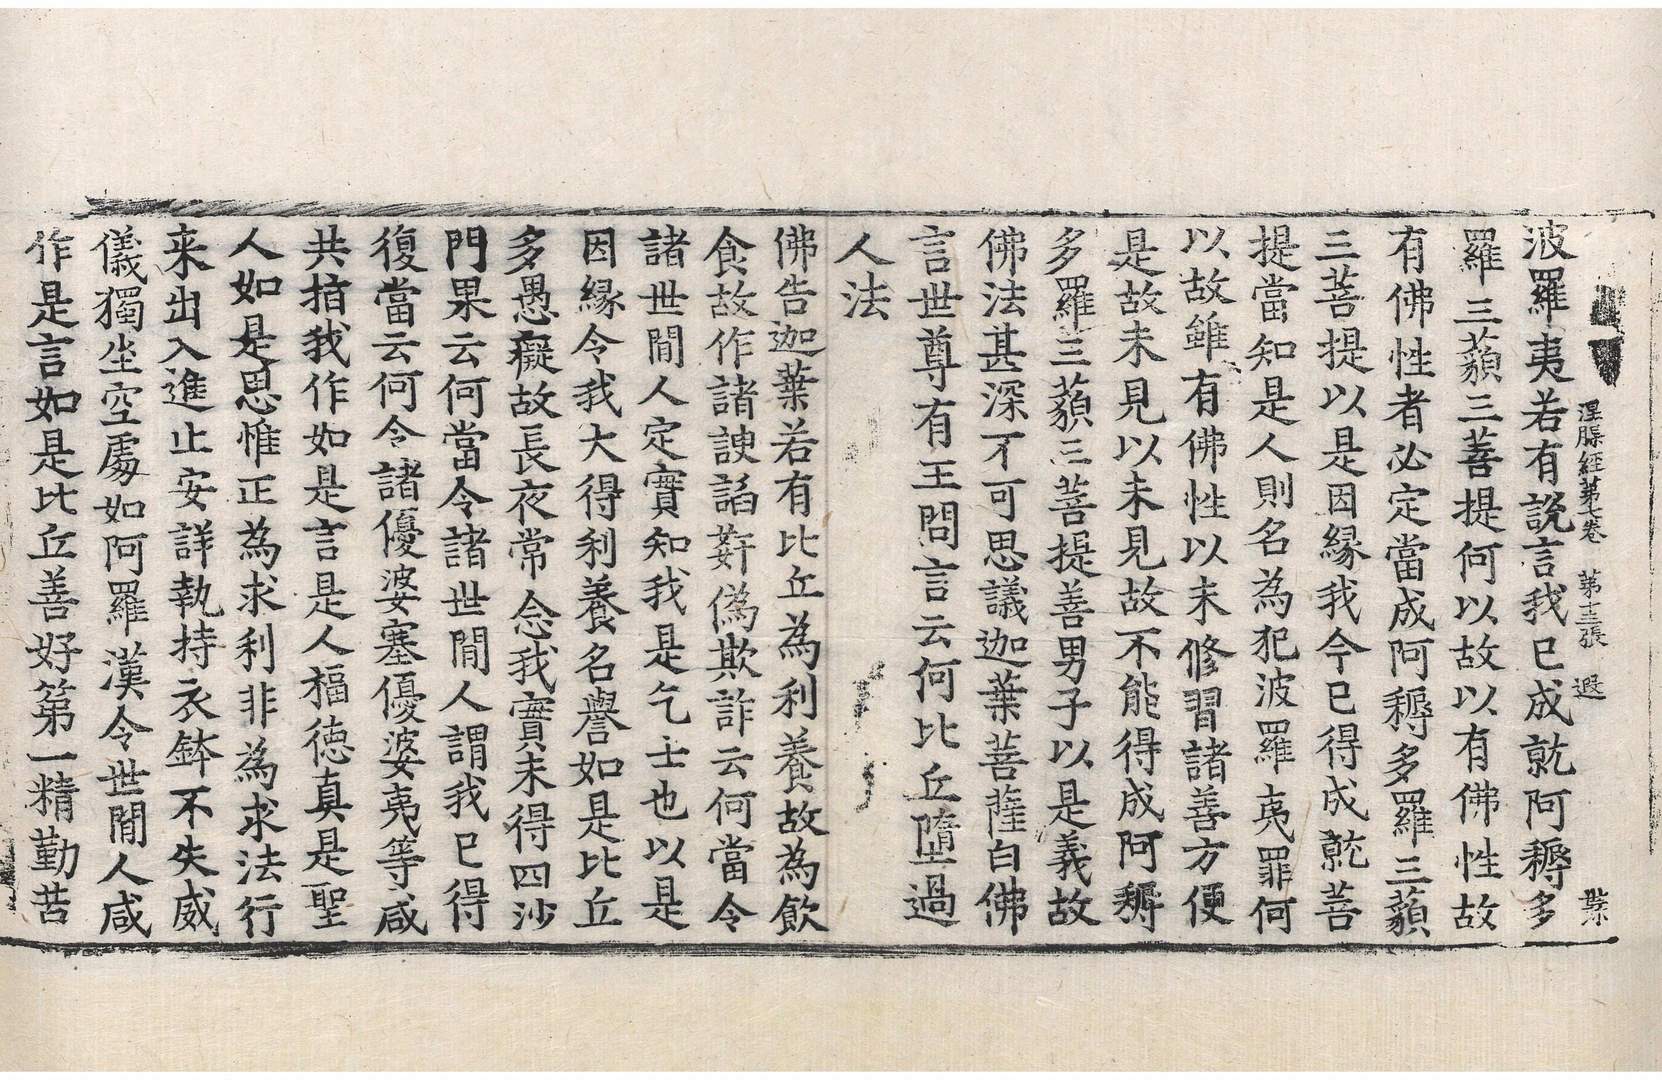 涅槃經第七卷 第十三張 遐
波羅夷若有說言我已成就阿耨多
羅三藐三菩提何以故以有佛性故
有佛性者必定當成阿耨多羅三藐
三菩提以是因緣我今已得成就菩
提當知是人則名為犯波羅夷罪何
以故雖有佛性以未修習諸善方便
是故未見以未見故不能得成阿耨
多羅三藐三菩提善男子以是義故
佛法甚深不可思議迦葉菩薩白佛
言世尊有王問言云何比丘墮過
人法
佛告迦葉若有比丘為利養故為飲
食故作諸諛諂姧偽欺詐云何當令
諸世間人定實知我是乞士也以是
因緣令我大得利養名譽如是比丘
多愚癡故長夜常念我實未得四沙
門果云何當令諸世間人謂我已得
復當云何令諸優婆塞優婆夷等咸
共指我作如是言是人福德真是聖
人如是思惟正為求利非為求法行
来出入進止安詳執持衣鉢不失威
儀獨坐空處如阿羅漢令世間人咸
作是言如是比丘善好第一精勤苦